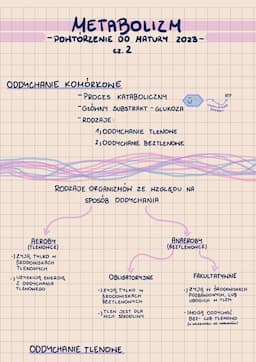 METABOLIZM
- POWTÓRZENIE DO MATURY 2023 -
cz. 2
ODDYCHANIE KOMÓRKOWE
- PROCES KATABOLICZNY
- GŁÓWNY SUBSTRAT - GLUKOZA
- RODZAJE:
1) ODDYCHANIE TLENOWE
2) ODDYCHANIE BEZTLENOWE
RODZAJE ORGANIZMÓW ZE WZGLĘDU NA
SPOSÓB ODDYCHANIA
AEROBY
(TLENOWCE)
- ŻYJĄ TYLKO W
ŚRODOWISKACH
TLENOWYCH
- UZYSKUJĄ ENERGIĘ
Z ODDYCHANIA
TLENOWEGO
ANAEROBY
(BEZTLENOWCE)
OBLIGATORYJNE
- ŻYJĄ TYLKO W
ŚRODOWISKACH
BEZTLENOWYCH
- TLEN JEST DLA
NICH SZKODLIWY
FAKULTATYWNE
- ŻYJĄ W ŚRODOWISKACH
POZBAWIONYCH, LUB
UBOGICH W TLEN
- MOGĄ ODDYCHAĆ
BEZ- LUB TLENOWO
ODDYCHANIE TLENOWE